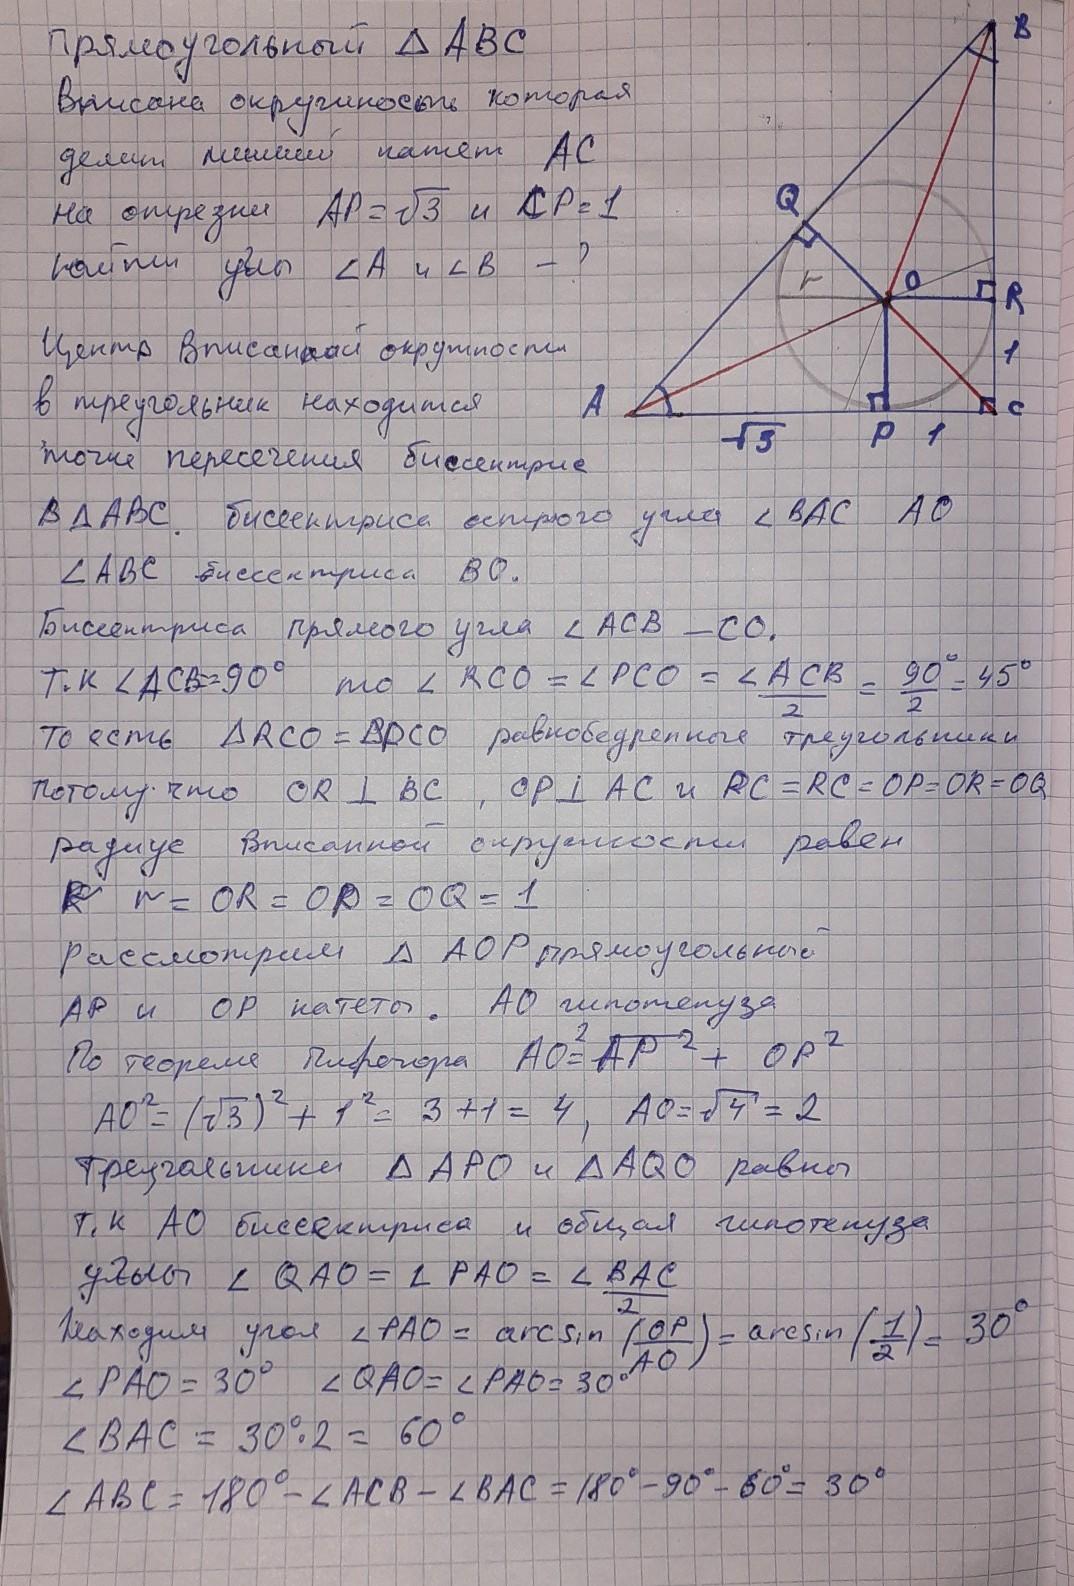 Прямоугольный △ ABC
Вписана окружность которая
делит нижний катет AC
на отрезки AP=√3 и CP=1
найти углы ∠A и ∠B – ?
B
Q
r
O
R
1
A
√3
P
1
C
Центр Вписанной окружности
в треугольник находится
точке пересечения биссектрис
В △ABC. биссектриса острого угла ∠BAC AO
∠ABC биссектриса BO.
Биссектриса прямого угла ∠ACB – CO.
Т.к ∠ACB=90° то ∠ RCO = ∠PCO = ∠ACB/2 = 90°/2 = 45°
То есть △RCO = △PCO равнобедренные треугольники
потому что OR ⊥ BC , OP ⊥ AC и PC = RC = OP = OR = OQ
радиус вписанной окружности равен
r = OR = OP = OQ = 1
рассмотрим △ AOP прямоугольный
AP и OP катеты. AO гипотенуза
По теореме Пифагора AO²= AP² + OP²
AO² = (√3)² + 1² = 3+1 = 4, AO = √4 = 2
Треугальники △ APO и △ AQO равны
т.к AO биссектриса и общая гипотенуза
углы ∠ QAO = ∠ PAO = ∠BAC/2
Находим угол ∠PAO = arcsin (OP/AO) = arcsin (1/2) = 30°
∠ PAO = 30° ∠QAO = ∠PAO = 30°
∠ BAC = 30°·2 = 60°
∠ ABC = 180° – ∠ACB – ∠BAC = 180° – 90° – 60° = 30°